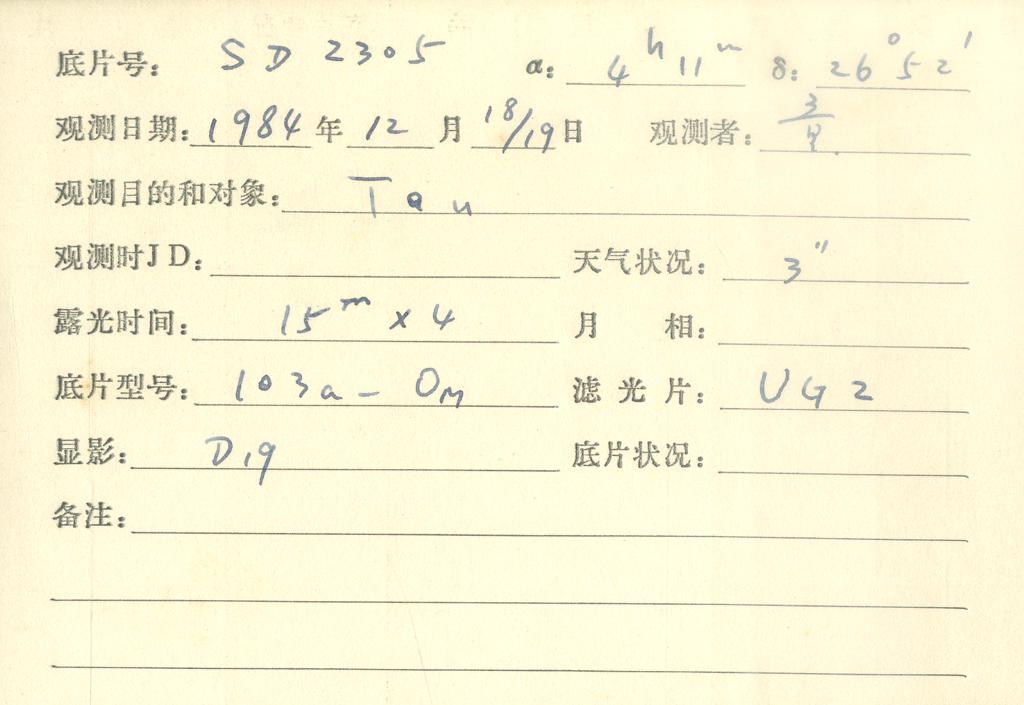 底片号： SD 2305 α： 4ʰ11ᵐ δ： 26°52′
观测日期： 1984 年 12 月 18/19 日 观测者：
观测目的和对象： Tau
观测时JD： 天气状况： 3″
露光时间： 15ᵐ × 4 月 相：
底片型号： 103a-OM 滤光片： UG2
显影： D19 底片状况：
备注：